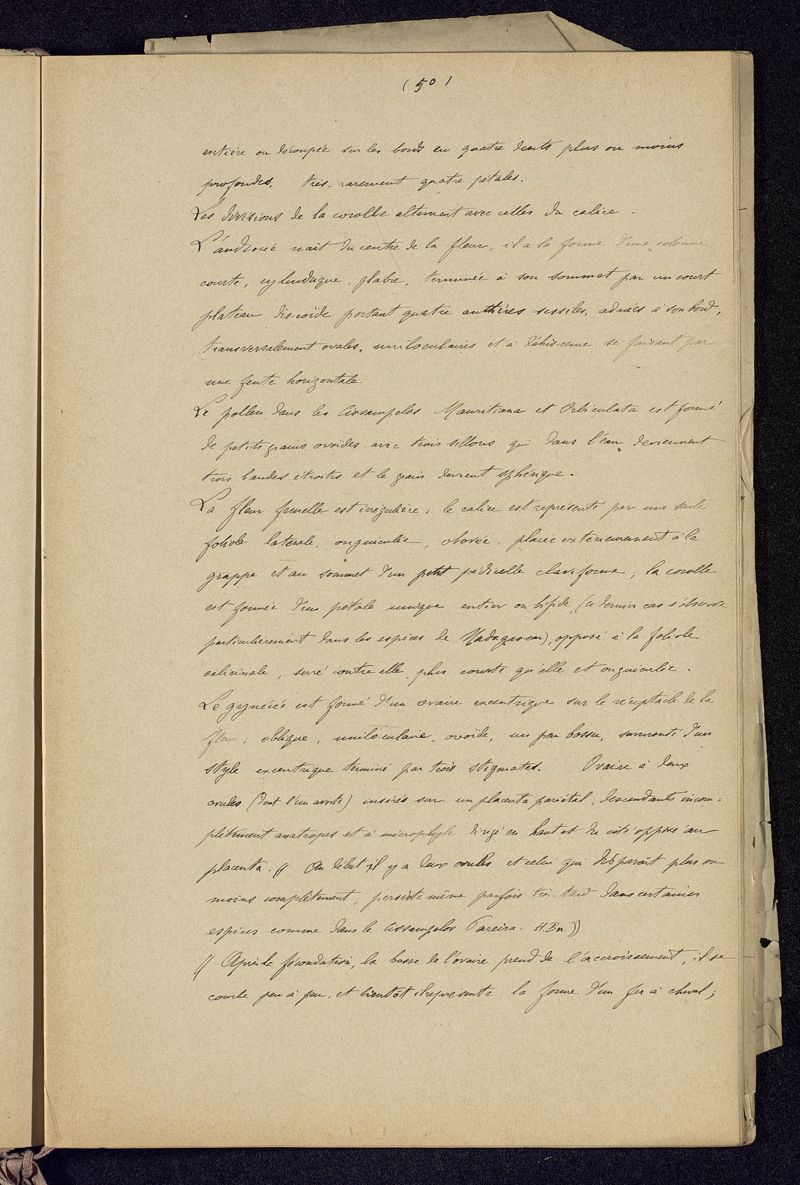 (50)
entière ou découpée sur les bords en quatre dents plus ou moins
profondes, très-rarement quatre pétales.
Les divisions de la corolle alternent avec celles du calice.
L'androcée nait du centre de la fleur, il a la forme d'une colonne
courte, cylindrique, glabre, terminée à son sommet par un court
plateau discoïde portant quatre anthères sessiles, adnées à son bord,
transversalement ovales, uniloculaires et à déhiscence se faisant par
une fente horizontale.
Le pollen dans les Cissampelos Mauritiana et Orbiculata est formé
de petits grains ovoides avec trois sillons qui dans l'eau deviennent
trois bandes étroites et le grain devient sphérique.
La fleur femelle est irrégulière; le calice est représenté par une seule
foliole latérale, onguiculée, obovée, placée extérieurement à la
grappe et au sommet d'un petit pédicelle claviforme; la corolle
est formée d'un pétale unique entier ou bifide, (ce dernier cas s'observe
particulièrement dans les espèces de Madagascar), opposé à la foliole
calicinale, serré contre elle, plus courte qu'elle et onguiculée.
Le gynécée est formé d'un ovaire excentrique sur le réceptacle de la
fleur; oblique, uniloculaire, ovoide, un peu bossu, surmonté d'un
style excentrique terminé par trois stigmates. Ovaire à deux
ovules (dont l'un avorte) insérés sur un placenta pariétal, descendants incom-
plètement anatropes et à micropyle dirigé en haut et du côté opposé au
placenta. (( Au début il y a deux ovules et celui qui disparait plus ou
moins complètement, persiste même parfois très-tard dans certaines
espèces comme dans le Cissampelos Pareira. HBn))
(( Après la fécondation, la bosse de l'ovaire prend de l'accroissement, il se
courbe peu à peu, et bientôt il représente la forme d'un fer à cheval;